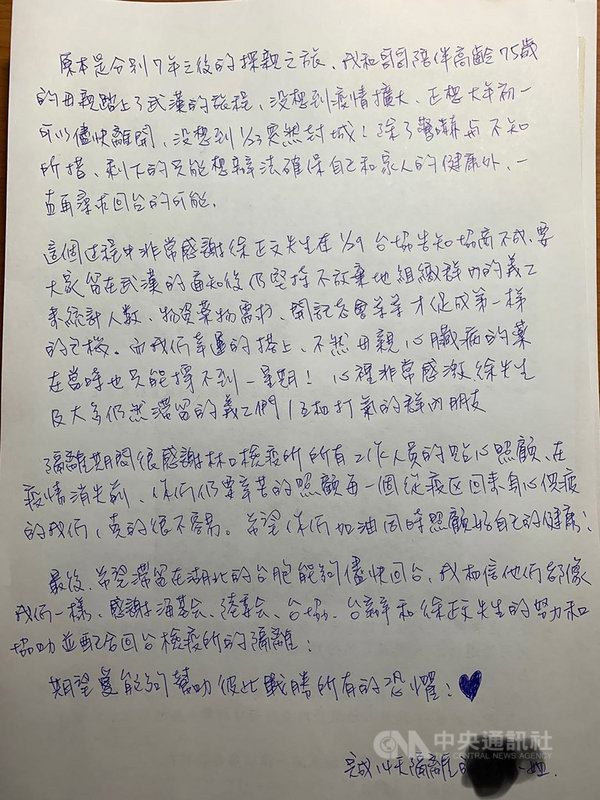 原本是分別7年之後的探親之旅、我和哥哥陪伴高齡75歲
的母親踏上了武漢的旅程、沒想到疫情擴大、正想大年初一
可以儘快離開，沒想到1/23突然封城！除了驚嚇与不知
所措、剩下的只能想辦法確保自己和家人的健康外、一
直再尋求回台的可能.
這個过程中非常感謝徐正文先生在1/29台協告知協商不成、要
大家留在武漢的通知後仍堅持不放棄地組織群內的義工
來統計人數、物資藥物需求、開記者會等等才促成第一梯
的包機。而我們幸運的搭上、不然母親心臟病的藥
在當時也只能撐不到一星期！心裡非常感激徐先生
及大多仍然滯留的義工們/互相打氣的群內朋友
隔離期間很感謝林口檢疫所所有工作人員的貼心照顧、在
疫情消失前、你們仍要辛苦的照顧每一個從疫区回來身心俱疲
的我們，真的很不容易。希望你們加油同時照顧好自己的健康！
最後、希望滯留在湖北的台胞能夠儘快回台、我相信他們都像
我們一樣、感謝海基会、陸委会、台協、台辦和徐正文先生的努力和
協助並配合回台檢疫所的隔離！
期望愛能夠幫助彼此戰勝所有的恐懼！
完成14天隔離的 小姐.
中央通訊社
CENTRAL NEWS AGENCY